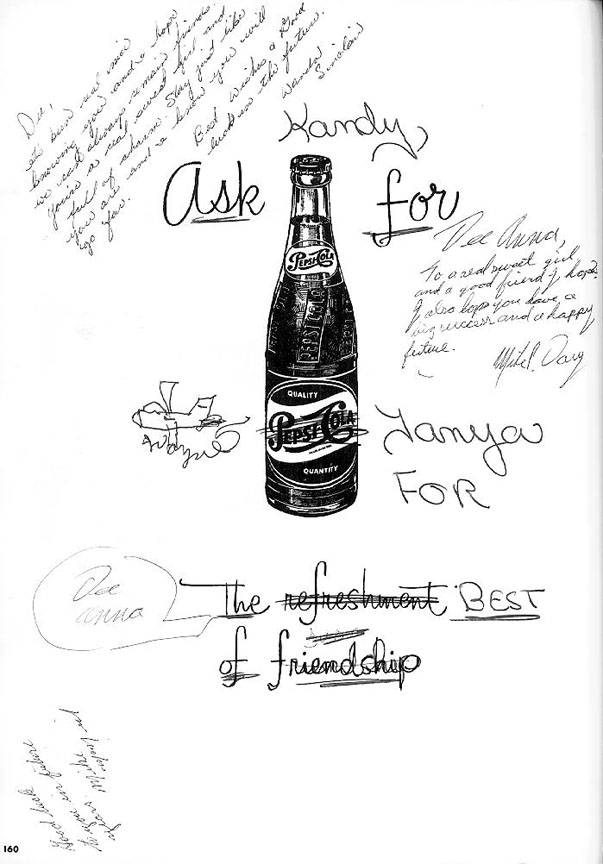 Dee,
It's been real nice
knowing you and I hope
we can always remain friends.
You're a real sweet girl and
full of charm. Stay just like
you are and I know you will
go far.
Best Wishes & Good
luck in the future.
Wanda Sinclair
Kandy,
Ask for
Dee Anna,
To a real sweet girl
and a good friend I hope.
I also hope you have a
big success and a happy
future.
Mike P.
PEPSI-COLA
PEPSI-COLA
QUALITY
PEPSI-COLA
QUANTITY
Wayne
Tanya
FOR
Dee
Anna
The refreshment BEST
of friendship
Good luck
to you in future
years Mike
160